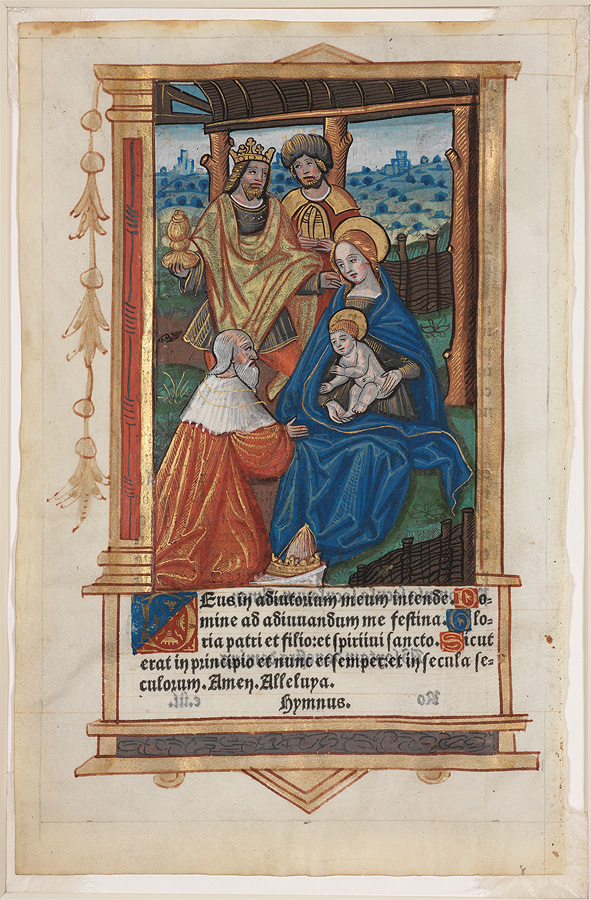 Deus in adiutorium meum intende. Do-
mine ad adiuuandum me festina. Glo-
ria patri et filio: et spiritui sancto. Sicut
erat in principio et nunc et semper: et in secula se-
culorum. Amen. Alleluya.
Hymnus.